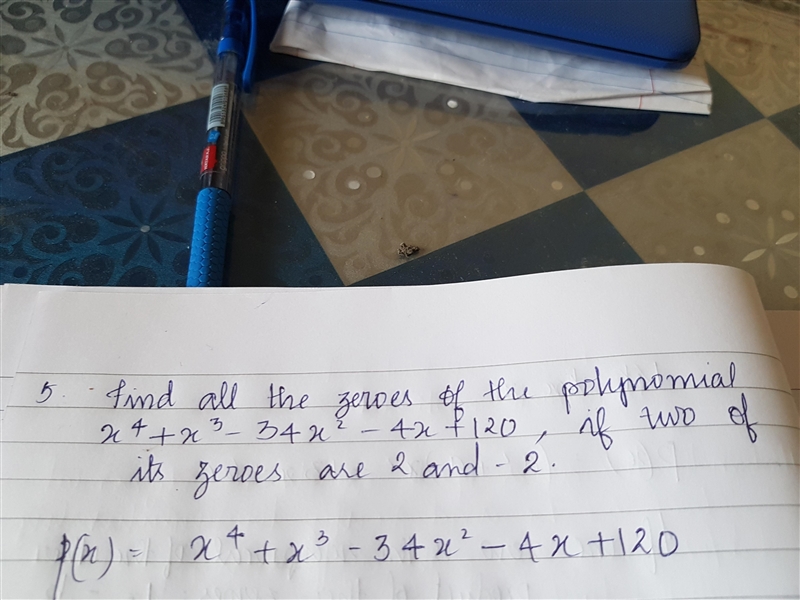 5. find all the zeroes of the polynomial
x⁴ + x³ - 34x² - 4x + 120, if two of
its zeroes are 2 and - 2.
p(x) = x⁴ + x³ - 34x² - 4x + 120